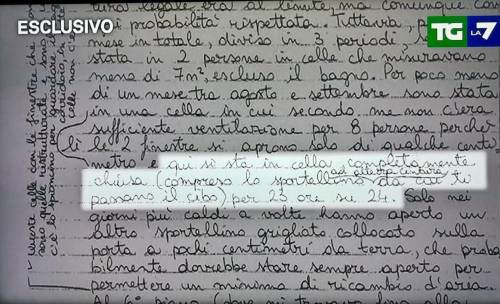 ESCLUSIVO
TG LA7
tura legale era al limite, ma comunque con
probabilità rispettata. Tuttavia,
mese in totale, diviso in 3 periodi,
stata in 2 persone in celle che misuravano
meno di 7m², escluso il bagno. Per poco meno
di un mese tra agosto e settembre sono stata
in una cella in cui secondo me non c'era
sufficiente ventilazione per 8 persone perché
lì le 2 finestre si aprono solo di qualche centi-
metro e qui si sta in cella completamente
chiusa (compreso lo sportellino ad altezza cintura da cui ti
passano il cibo) per 23 ore su 24. Solo nei
giorni più caldi a volte hanno aperto un
altro sportellino grigliato collocato sulla
porta a pochi centimetri da terra, che proba
bilmente dovrebbe stare sempre aperto per
permettere un minimo di ricambio d'aria.
Al 6° piano (dove mi
queste celle con le finestre che
sono quelle ristrutturate
corridoio, in
celle non